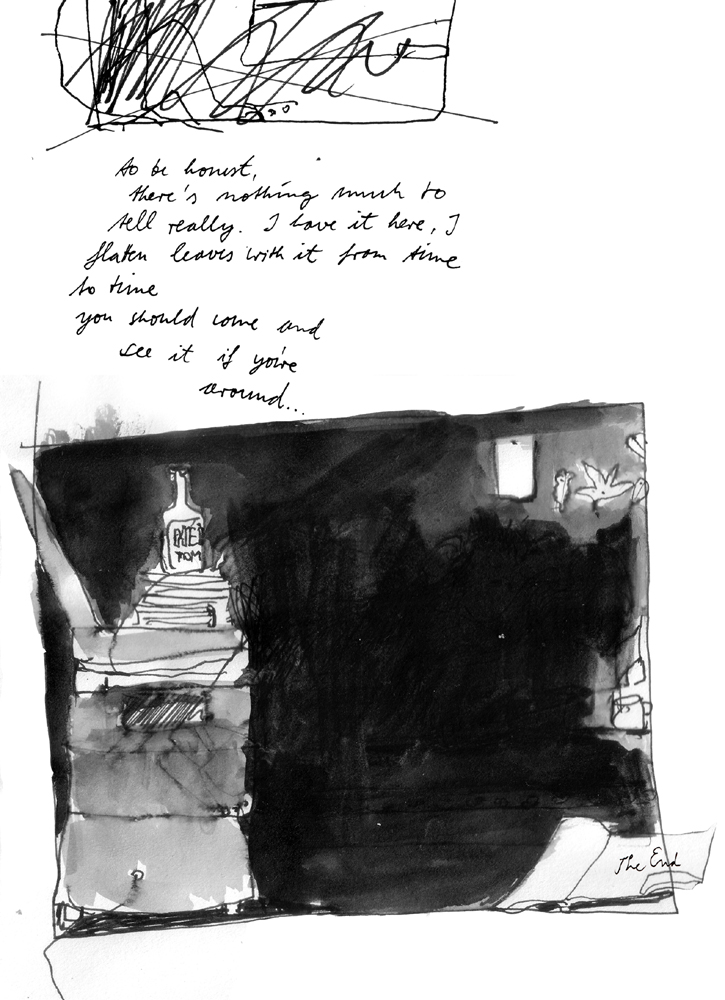 to be honest,
there's nothing much to
tell really. I love it here, I
flaten leaves with it from time
to time
you should come and
see it if you're
around...
The End